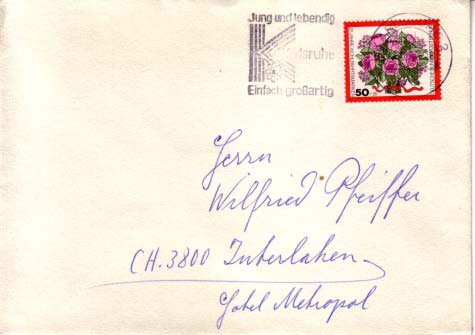 Jung und lebendig
Karlsruhe
Einfach großartig
50
Herrn
Wilfried Pfeiffer
CH.3800 Interlaken
Hotel Metropol